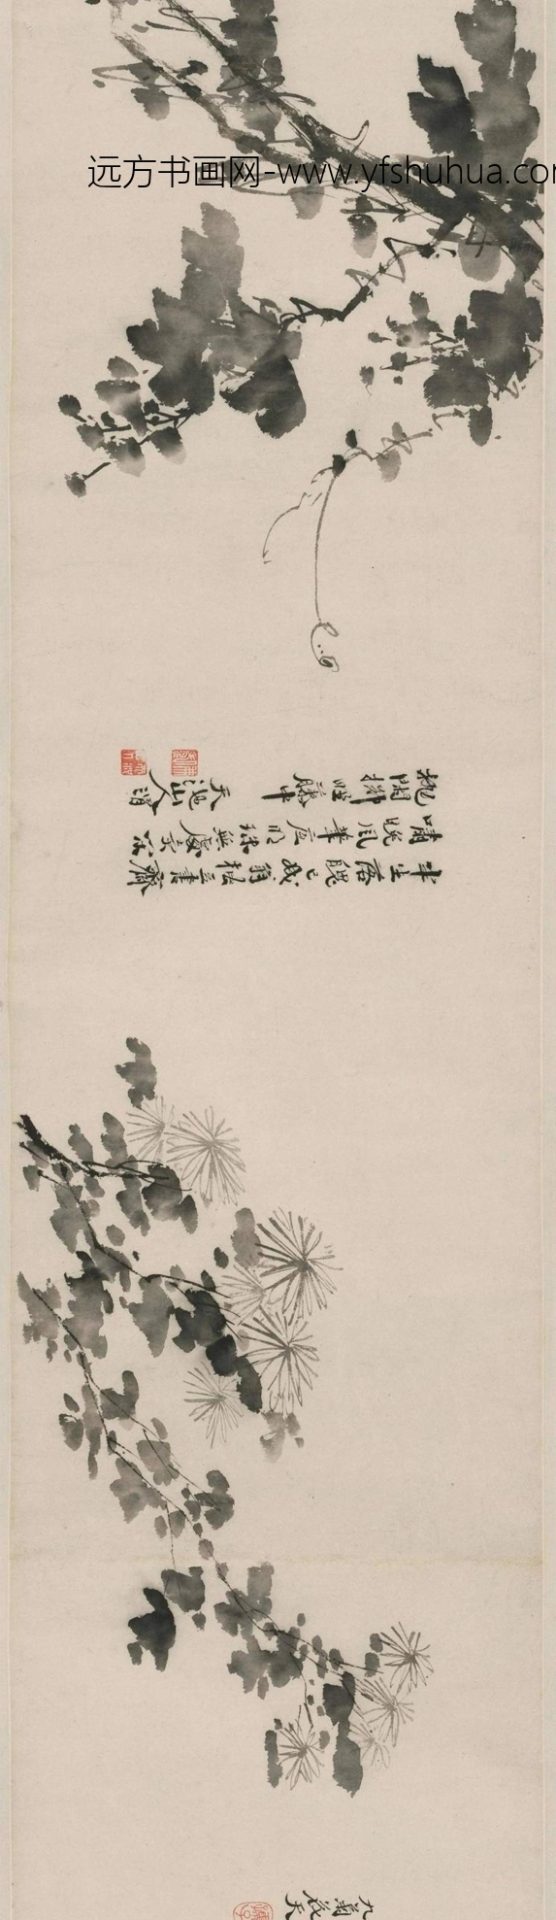 远方书画网-www.yfshuhua.com
半生落魄已成翁獨立書齋
嘯晚風筆底明珠無處賣
抛閒擲野藤中
天池山人渭
九菊花天